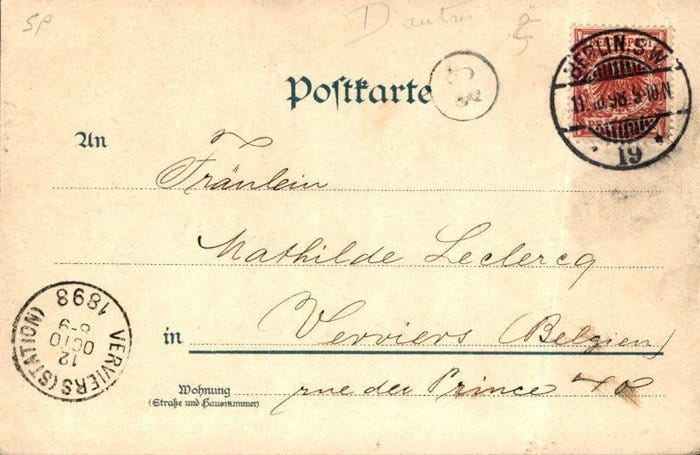 SP
D'autres
2
5
REICHSPOST
BERLIN.S.W.
11.10.98.9-10N
19
Postkarte
An
Fräulein
Mathilde Leclercq
in Verviers (Belgien)
Wohnung rue du Prince 48
(Straße und Hausnummer)
VERVIERS (STATION)
12
OCTO
8-9
1898